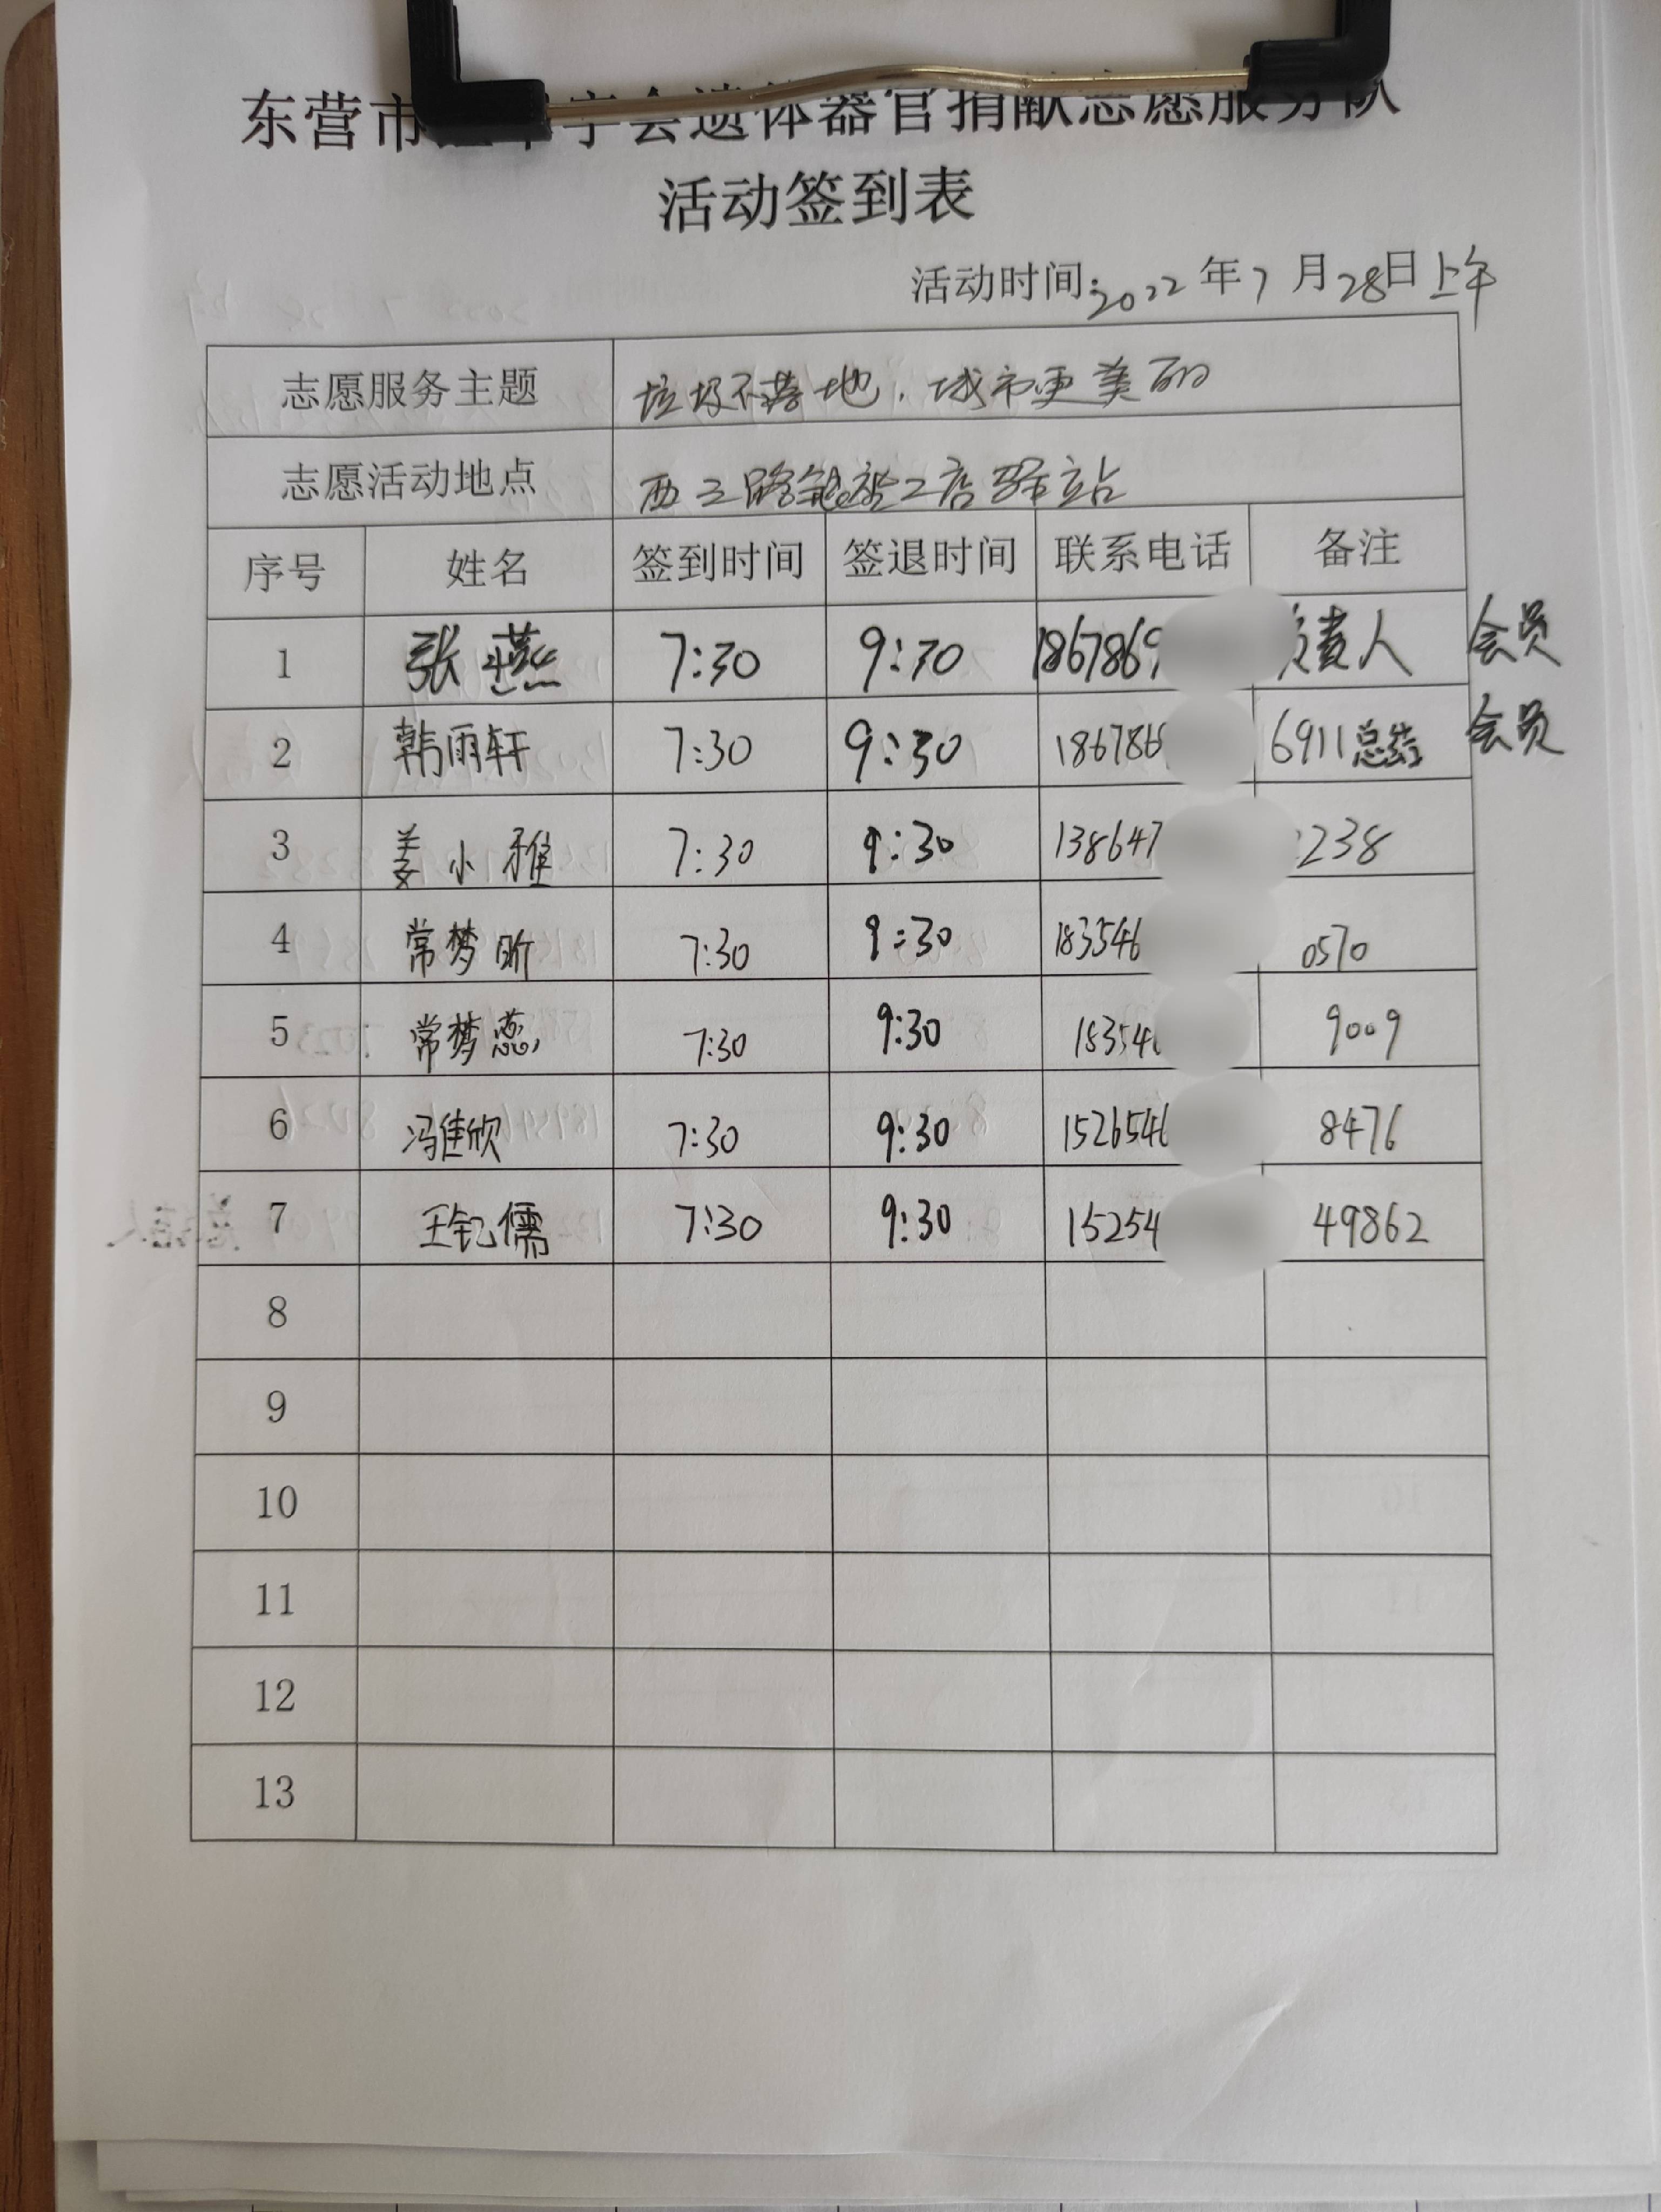 东营市 字会遗体器官捐献志愿服务队
活动签到表
活动时间:2022年7月28日上午
志愿服务主题 垃圾不落地,城市更美丽
志愿活动地点 西三路 二店驿站
序号 姓名 签到时间 签退时间 联系电话 备注
1 张燕 7:30 9:30 1867869 负责人 会员
2 韩雨轩 7:30 9:30 1867866 6911总结 会员
3 姜小雅 7:30 9:30 138647 2238
4 常梦昕 7:30 9:30 183546 0570
5 常梦蕊 7:30 9:30 183546 9009
6 冯佳欣 7:30 9:30 1526546 8476
7 王钇儒 7:30 9:30 15254 49862
8
9
10
11
12
13